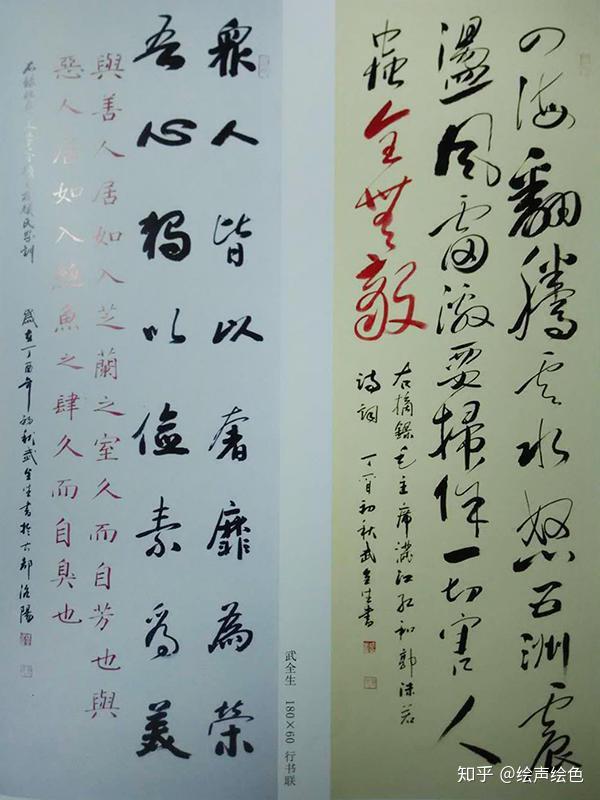 四海翻騰云水怒五洲震
盪風雷激要掃除一切害人
蟲全無敵
右摘錄毛主席滿江紅和郭沫若
詩詞 丁酉初秋武全生書
眾人皆以奢靡為榮
吾心獨以儉素為美
與善人居如入芝蘭之室久而自芳也與
惡人居如入鮑魚之肆久而自臭也
歲在丁酉年初秋武全生書於古都洛陽
武全生 180×60 行书联
知乎 @绘声绘色